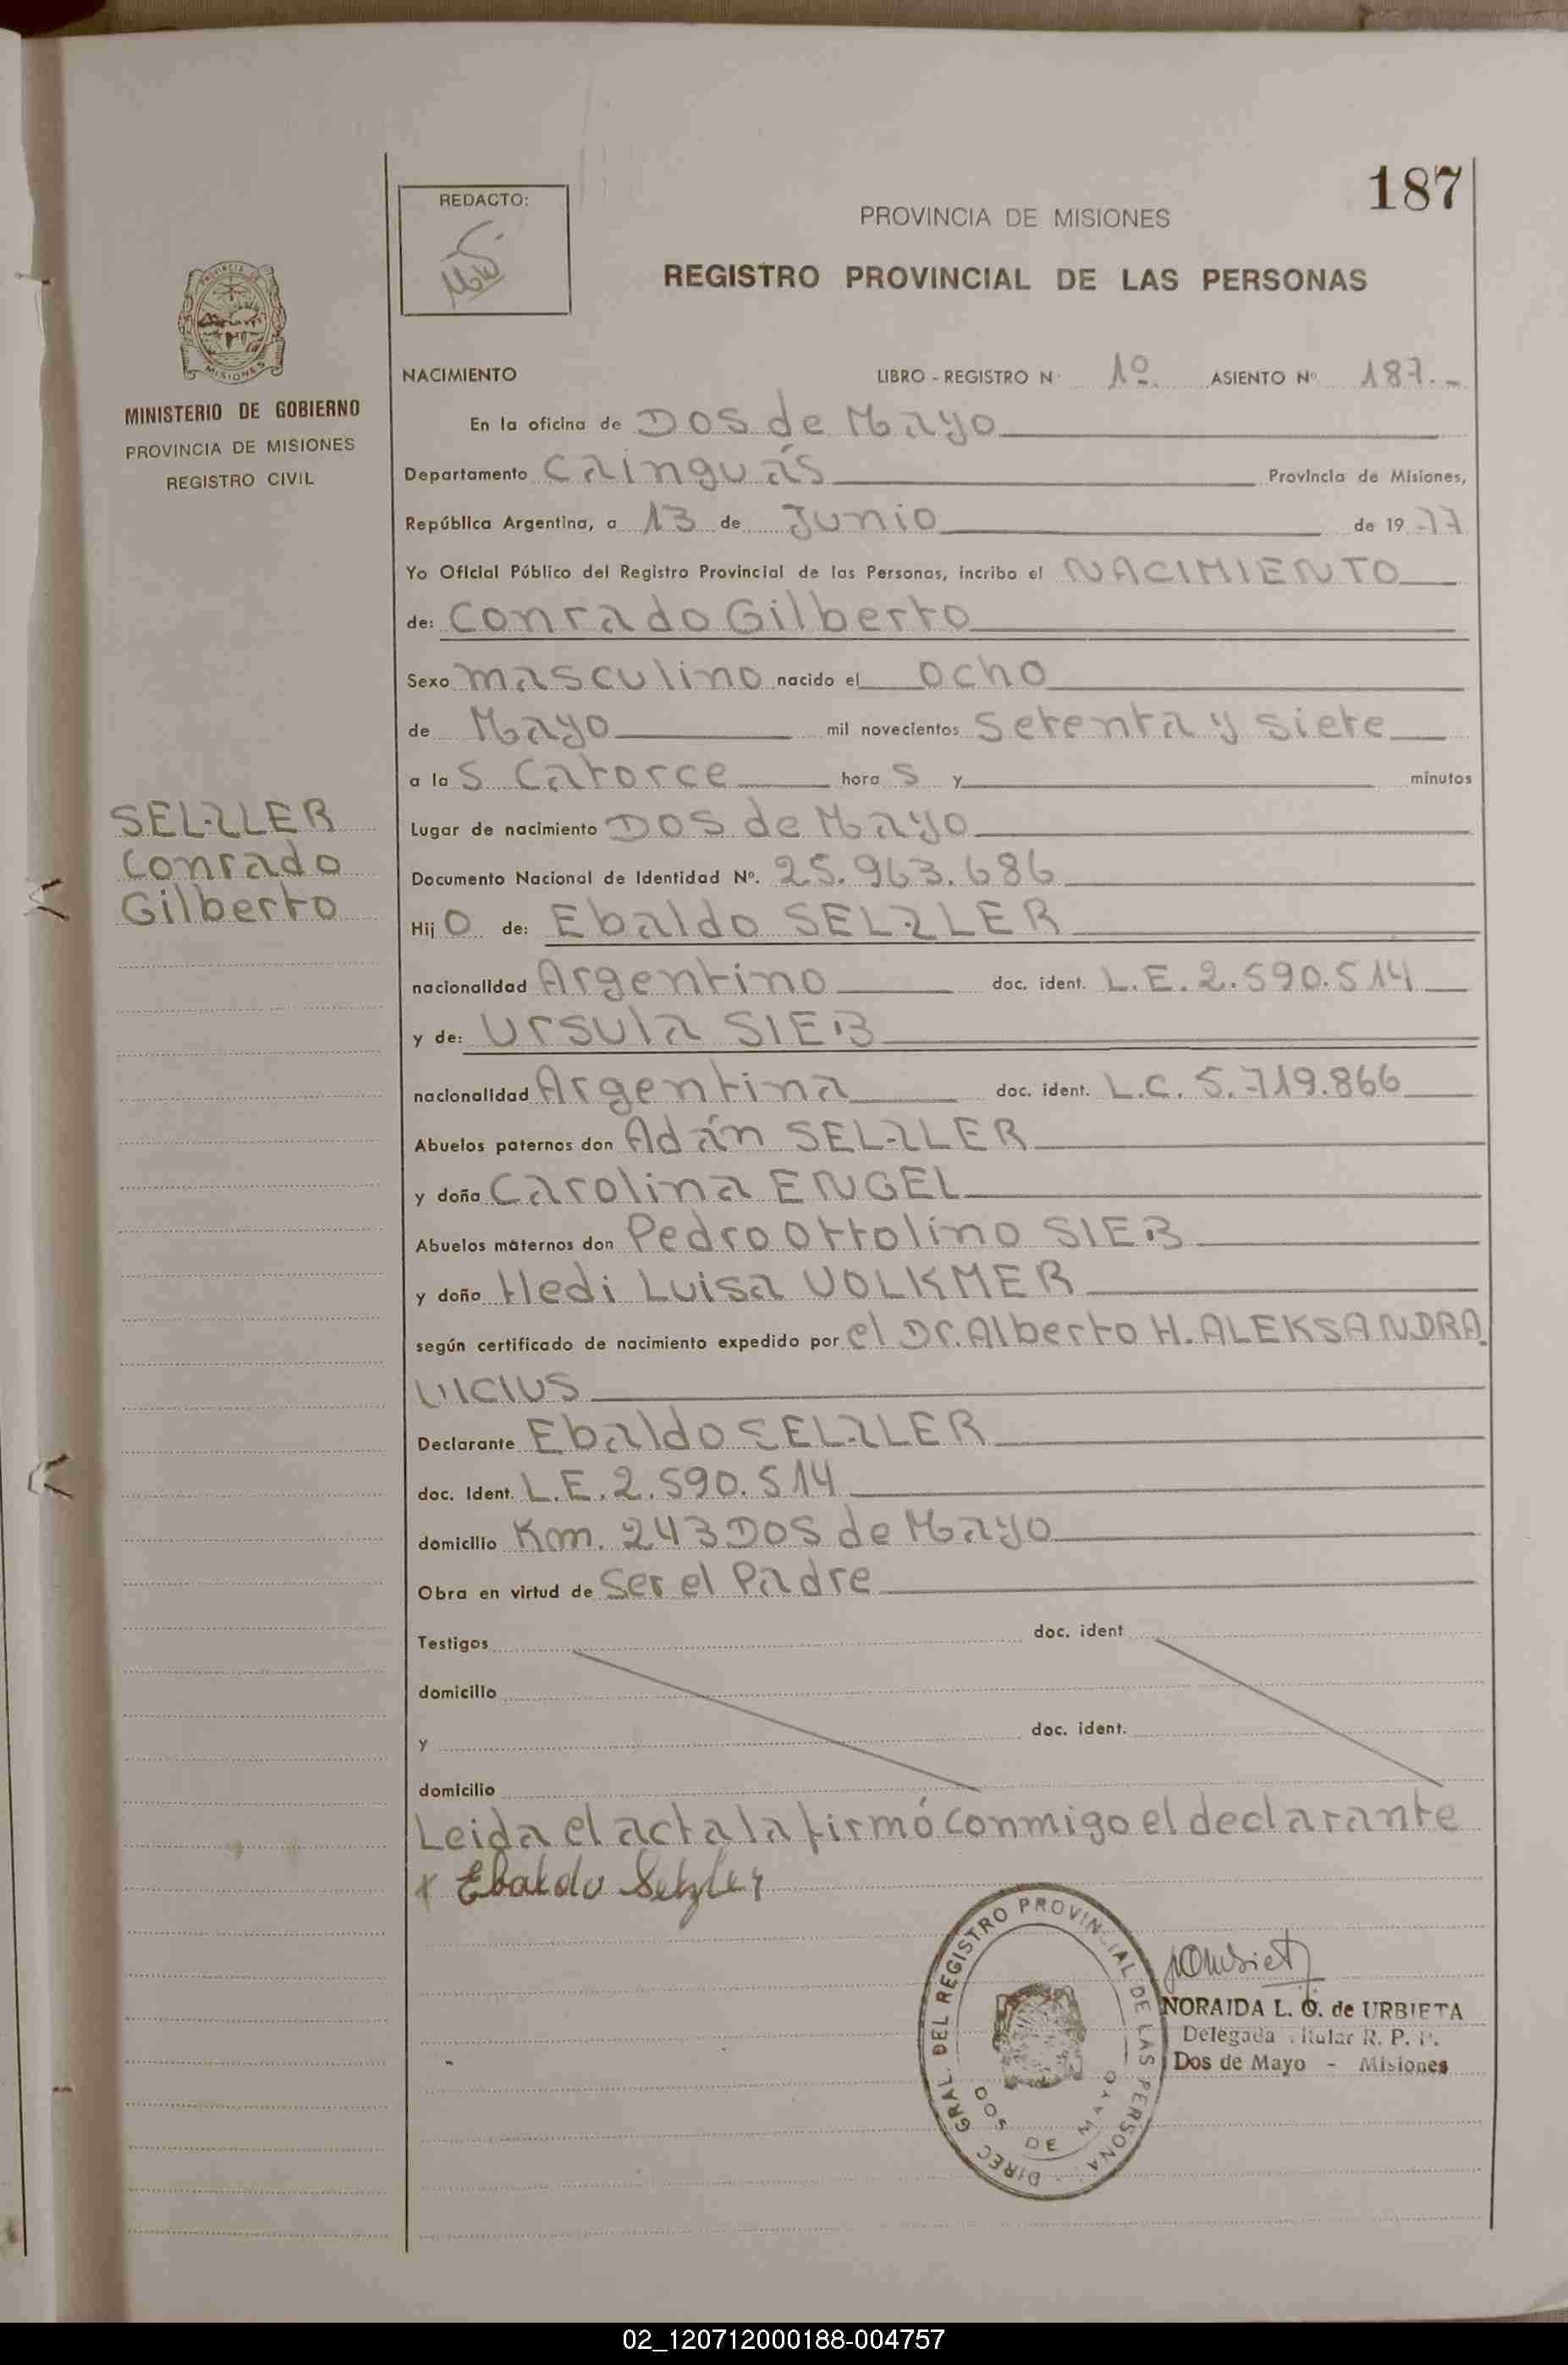 187
REDACTO:
PROVINCIA DE MISIONES
REGISTRO PROVINCIAL DE LAS PERSONAS
PROVINCIA DE
MISIONES
MINISTERIO DE GOBIERNO
PROVINCIA DE MISIONES
REGISTRO CIVIL
NACIMIENTO LIBRO - REGISTRO N° 1º ASIENTO Nº 187.-
En la oficina de Dos de Mayo
Departamento Cainguás Provincia de Misiones,
República Argentina, a 13 de Junio de 19 77
Yo Oficial Público del Registro Provincial de las Personas, incribo el NACIMIENTO
de: Conrado Gilberto
Sexo masculino nacido el ocho
de Mayo mil novecientos setenta y siete
a la s catorce hora s y minutos
SELZLER
Conrado
Gilberto
Lugar de nacimiento Dos de Mayo
Documento Nacional de Identidad Nº. 25.963.686
Hij o de: Ebaldo SELZLER
nacionalidad Argentino doc. ident. L.E. 2.590.514
y de: Ursula SIEB
nacionalidad Argentina doc. ident. L.C. 5.719.866
Abuelos paternos don Adán SELZLER
y doña Carolina ENGEL
Abuelos maternos don Pedro Ottolino SIEB
y doña Hedi Luisa VOLKMER
según certificado de nacimiento expedido por el Dr. Alberto H. ALEKSANDRA
VICIUS
Declarante Ebaldo SELZLER
doc. Ident. L.E. 2.590.514
domicilio Km. 243 Dos de Mayo
Obra en virtud de Ser el Padre
Testigos doc. ident
domicilio
y doc. ident.
domicilio
Leida el acta la firmó conmigo el declarante
x Ebaldo Selzler
DIREC GRAL. DEL REGISTRO PROVINCIAL DE LAS PERSONA
DOS DE MAYO
NORAIDA L. O. de URBIETA
Delegada Titular R. P. P.
Dos de Mayo - Misiones
02_120712000188-004757